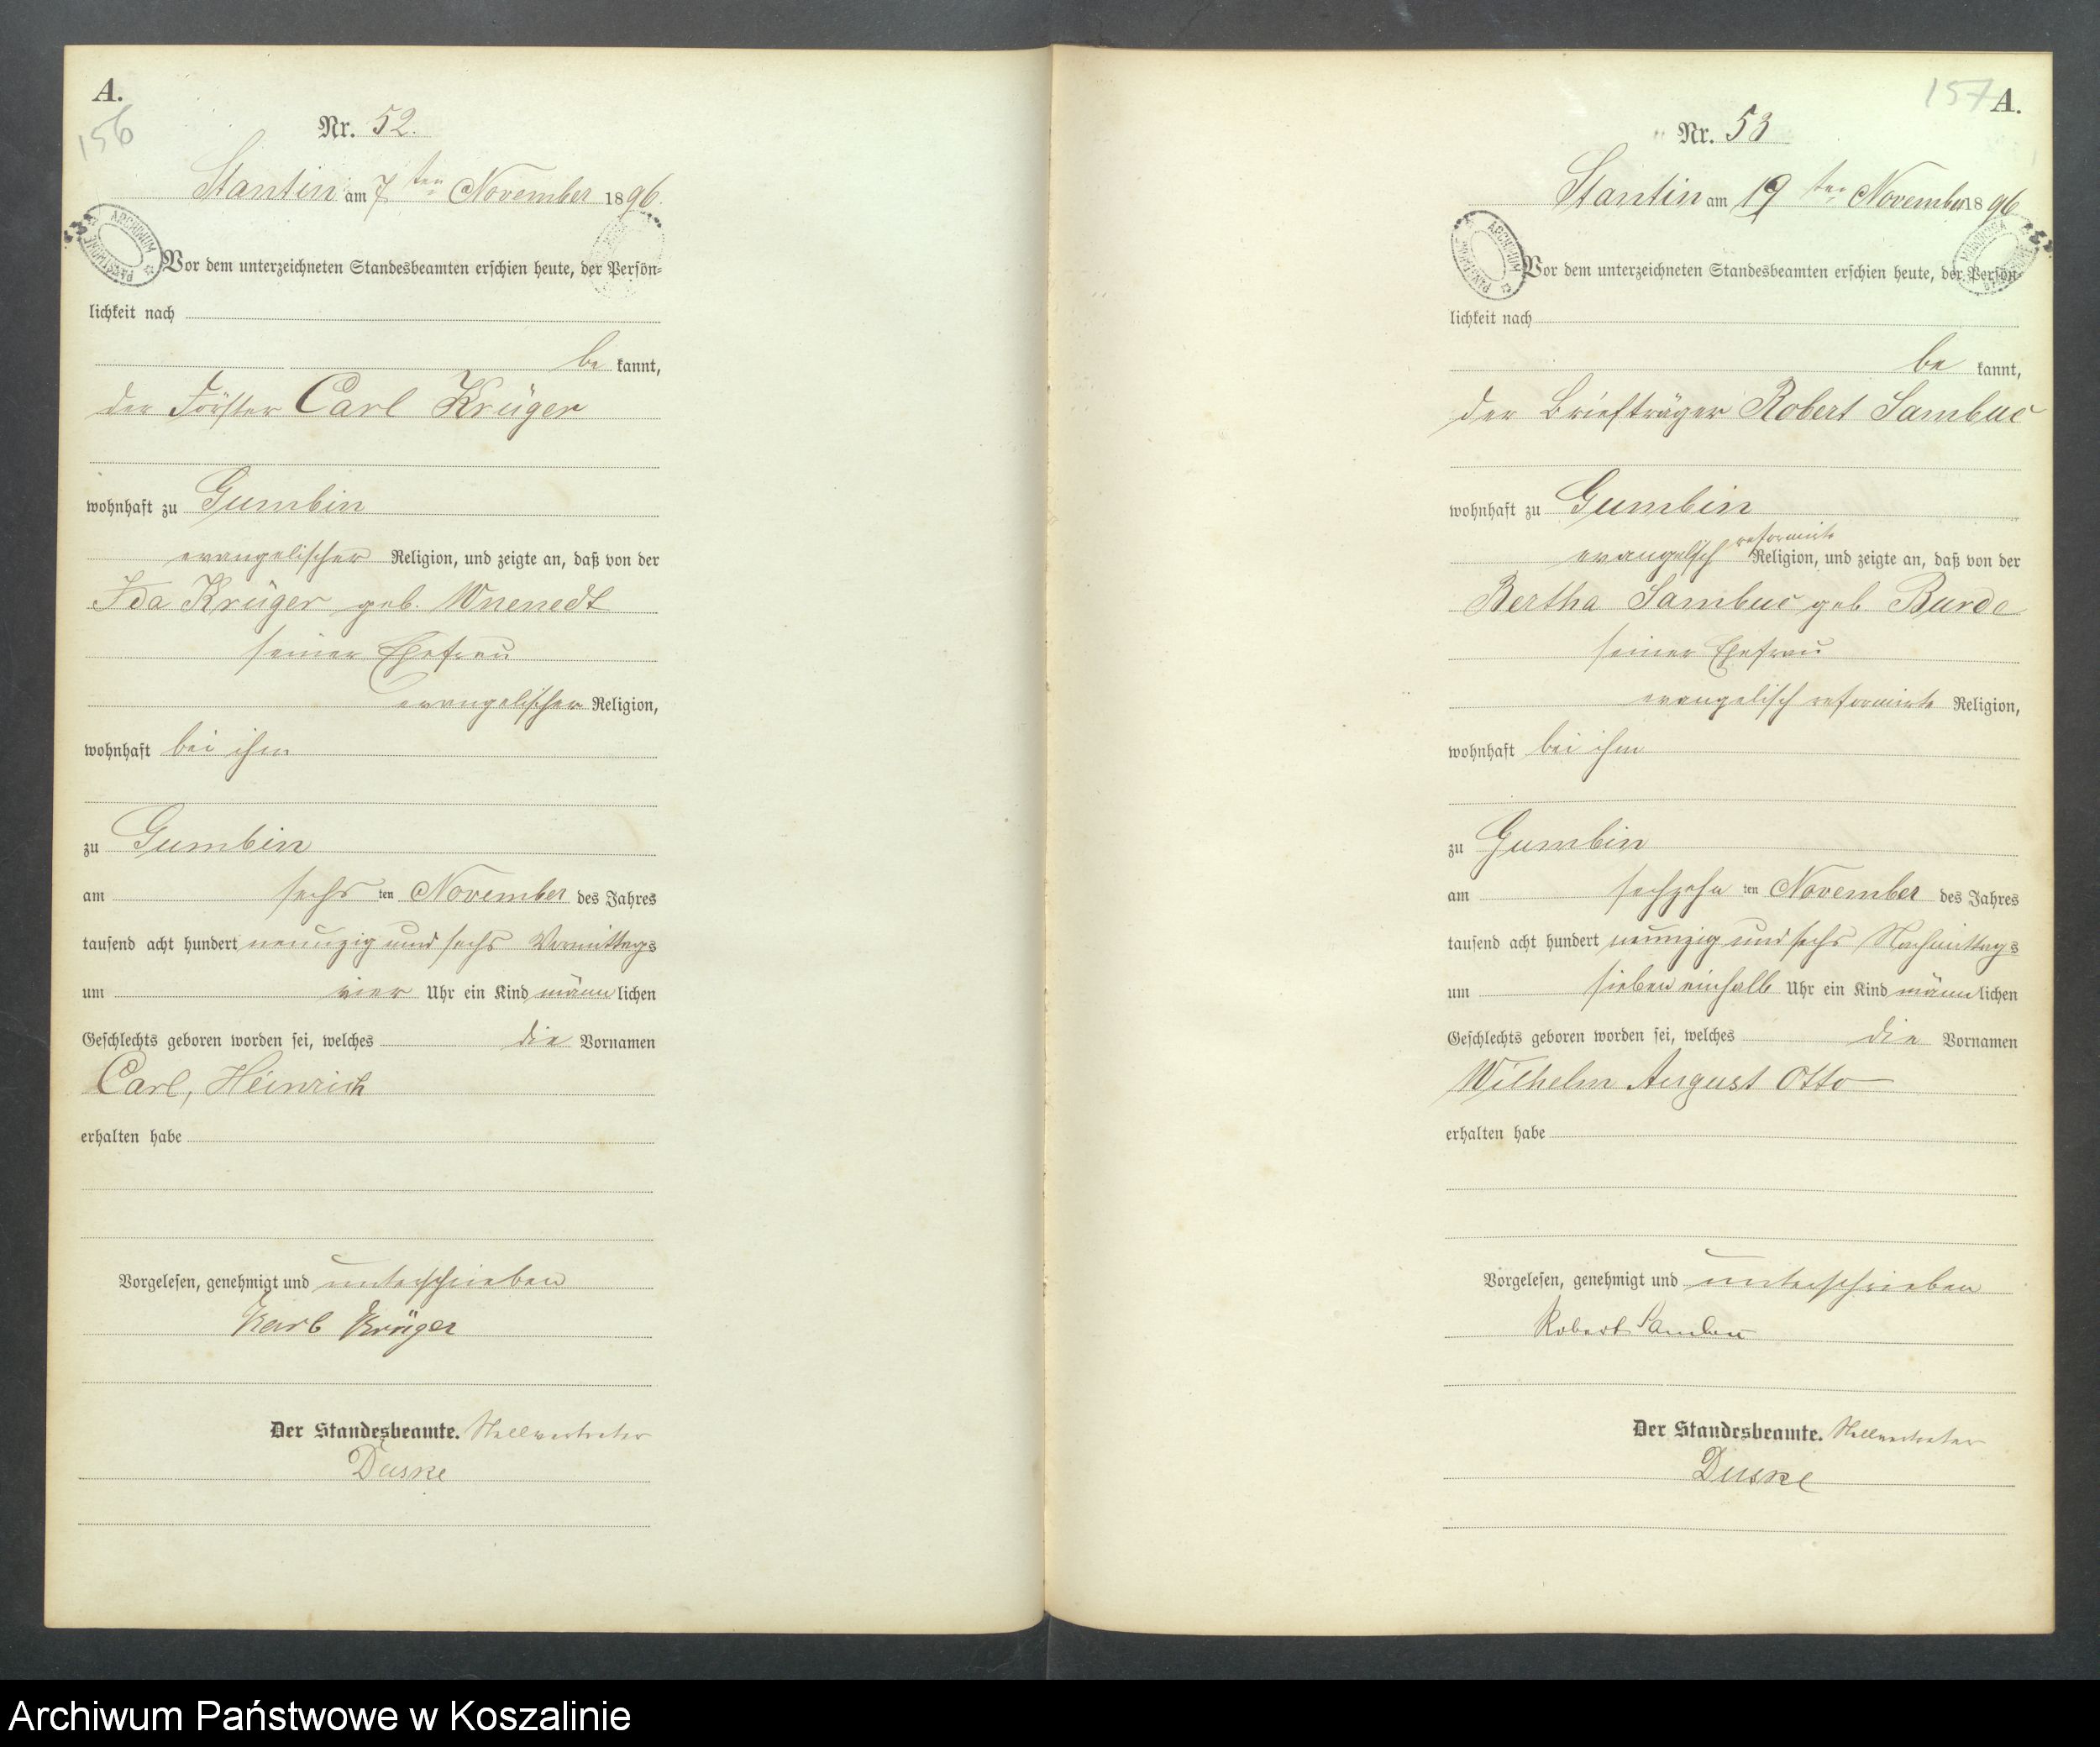 A.
156
Nr. 52.
Stantin am 7ten November 1896.
Vor dem unterzeichneten Standesbeamten erschien heute, der Persön-
lichkeit nach
be kannt,
der Förster Carl Krüger
wohnhaft zu Gumbin
evangelischer Religion, und zeigte an, daß von der
Ida Krüger geb.
seiner Ehefrau
evangelischer Religion,
wohnhaft bei ihm
zu Gumbin
am sechs ten November des Jahres
tausend acht hundert neunzig und sechs Vormittags
um vier Uhr ein Kind männlichen
Geschlechts geboren worden sei, welches die Vornamen
Carl, Heinrich
erhalten habe
Vorgelesen, genehmigt und unterschrieben
Karl Krüger
Der Standesbeamte. Stellvertreter
Duske
157
A.
Nr. 53
Stantin am 19ten November 1896
Vor dem unterzeichneten Standesbeamten erschien heute, der Persön-
lichkeit nach
be kannt,
der Briefträger Robert Sambuc
wohnhaft zu Gumbin
evangelisch reformirte Religion, und zeigte an, daß von der
Bertha Sambuc geb Burde
seiner Ehefrau
evangelisch reformirte Religion,
wohnhaft bei ihm
zu Gumbin
am sechzehn ten November des Jahres
tausend acht hundert neunzig und sechs Nachmittags
um sieben einhalb Uhr ein Kind männlichen
Geschlechts geboren worden sei, welches die Vornamen
Wilhelm August Otto
erhalten habe
Vorgelesen, genehmigt und unterschrieben
Robert Sambuc
Der Standesbeamte. Stellvertreter
Duske
Archiwum Państwowe w Koszalinie